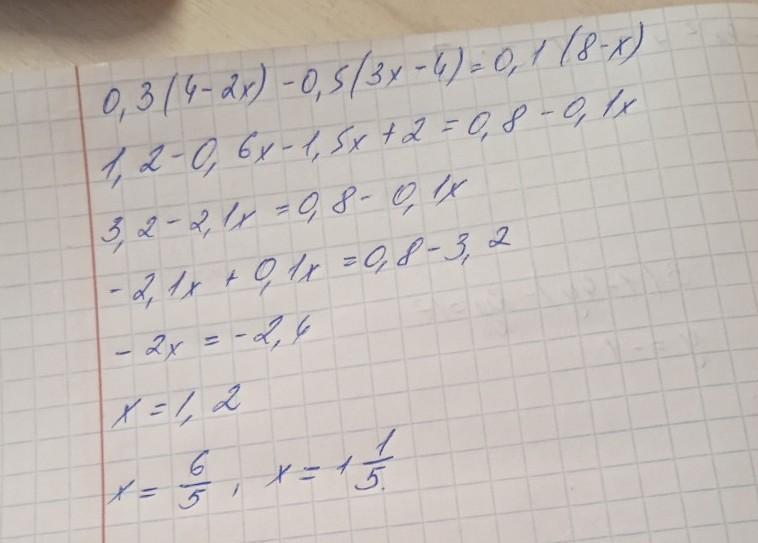 0,3(4-2x)-0,5(3x-4)=0,1(8-x)
1,2-0,6x-1,5x+2=0,8-0,1x
3,2-2,1x=0,8-0,1x
-2,1x+0,1x=0,8-3,2
-2x=-2,4
x=1,2
x=6/5, x=1 1/5